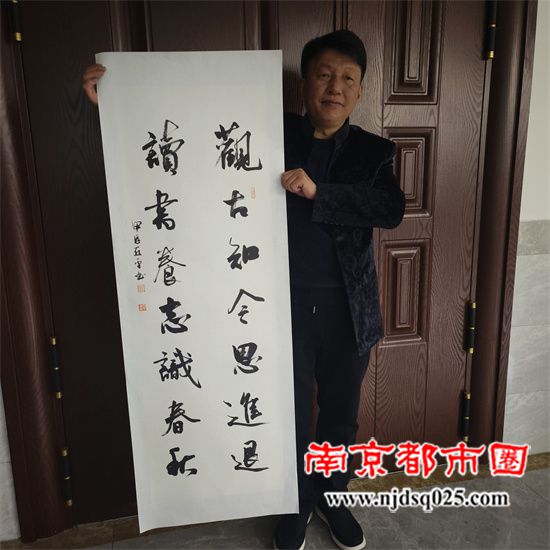 觀古知今思進退
讀書養志識春秋
南京都市圈
www.njdsq025.com